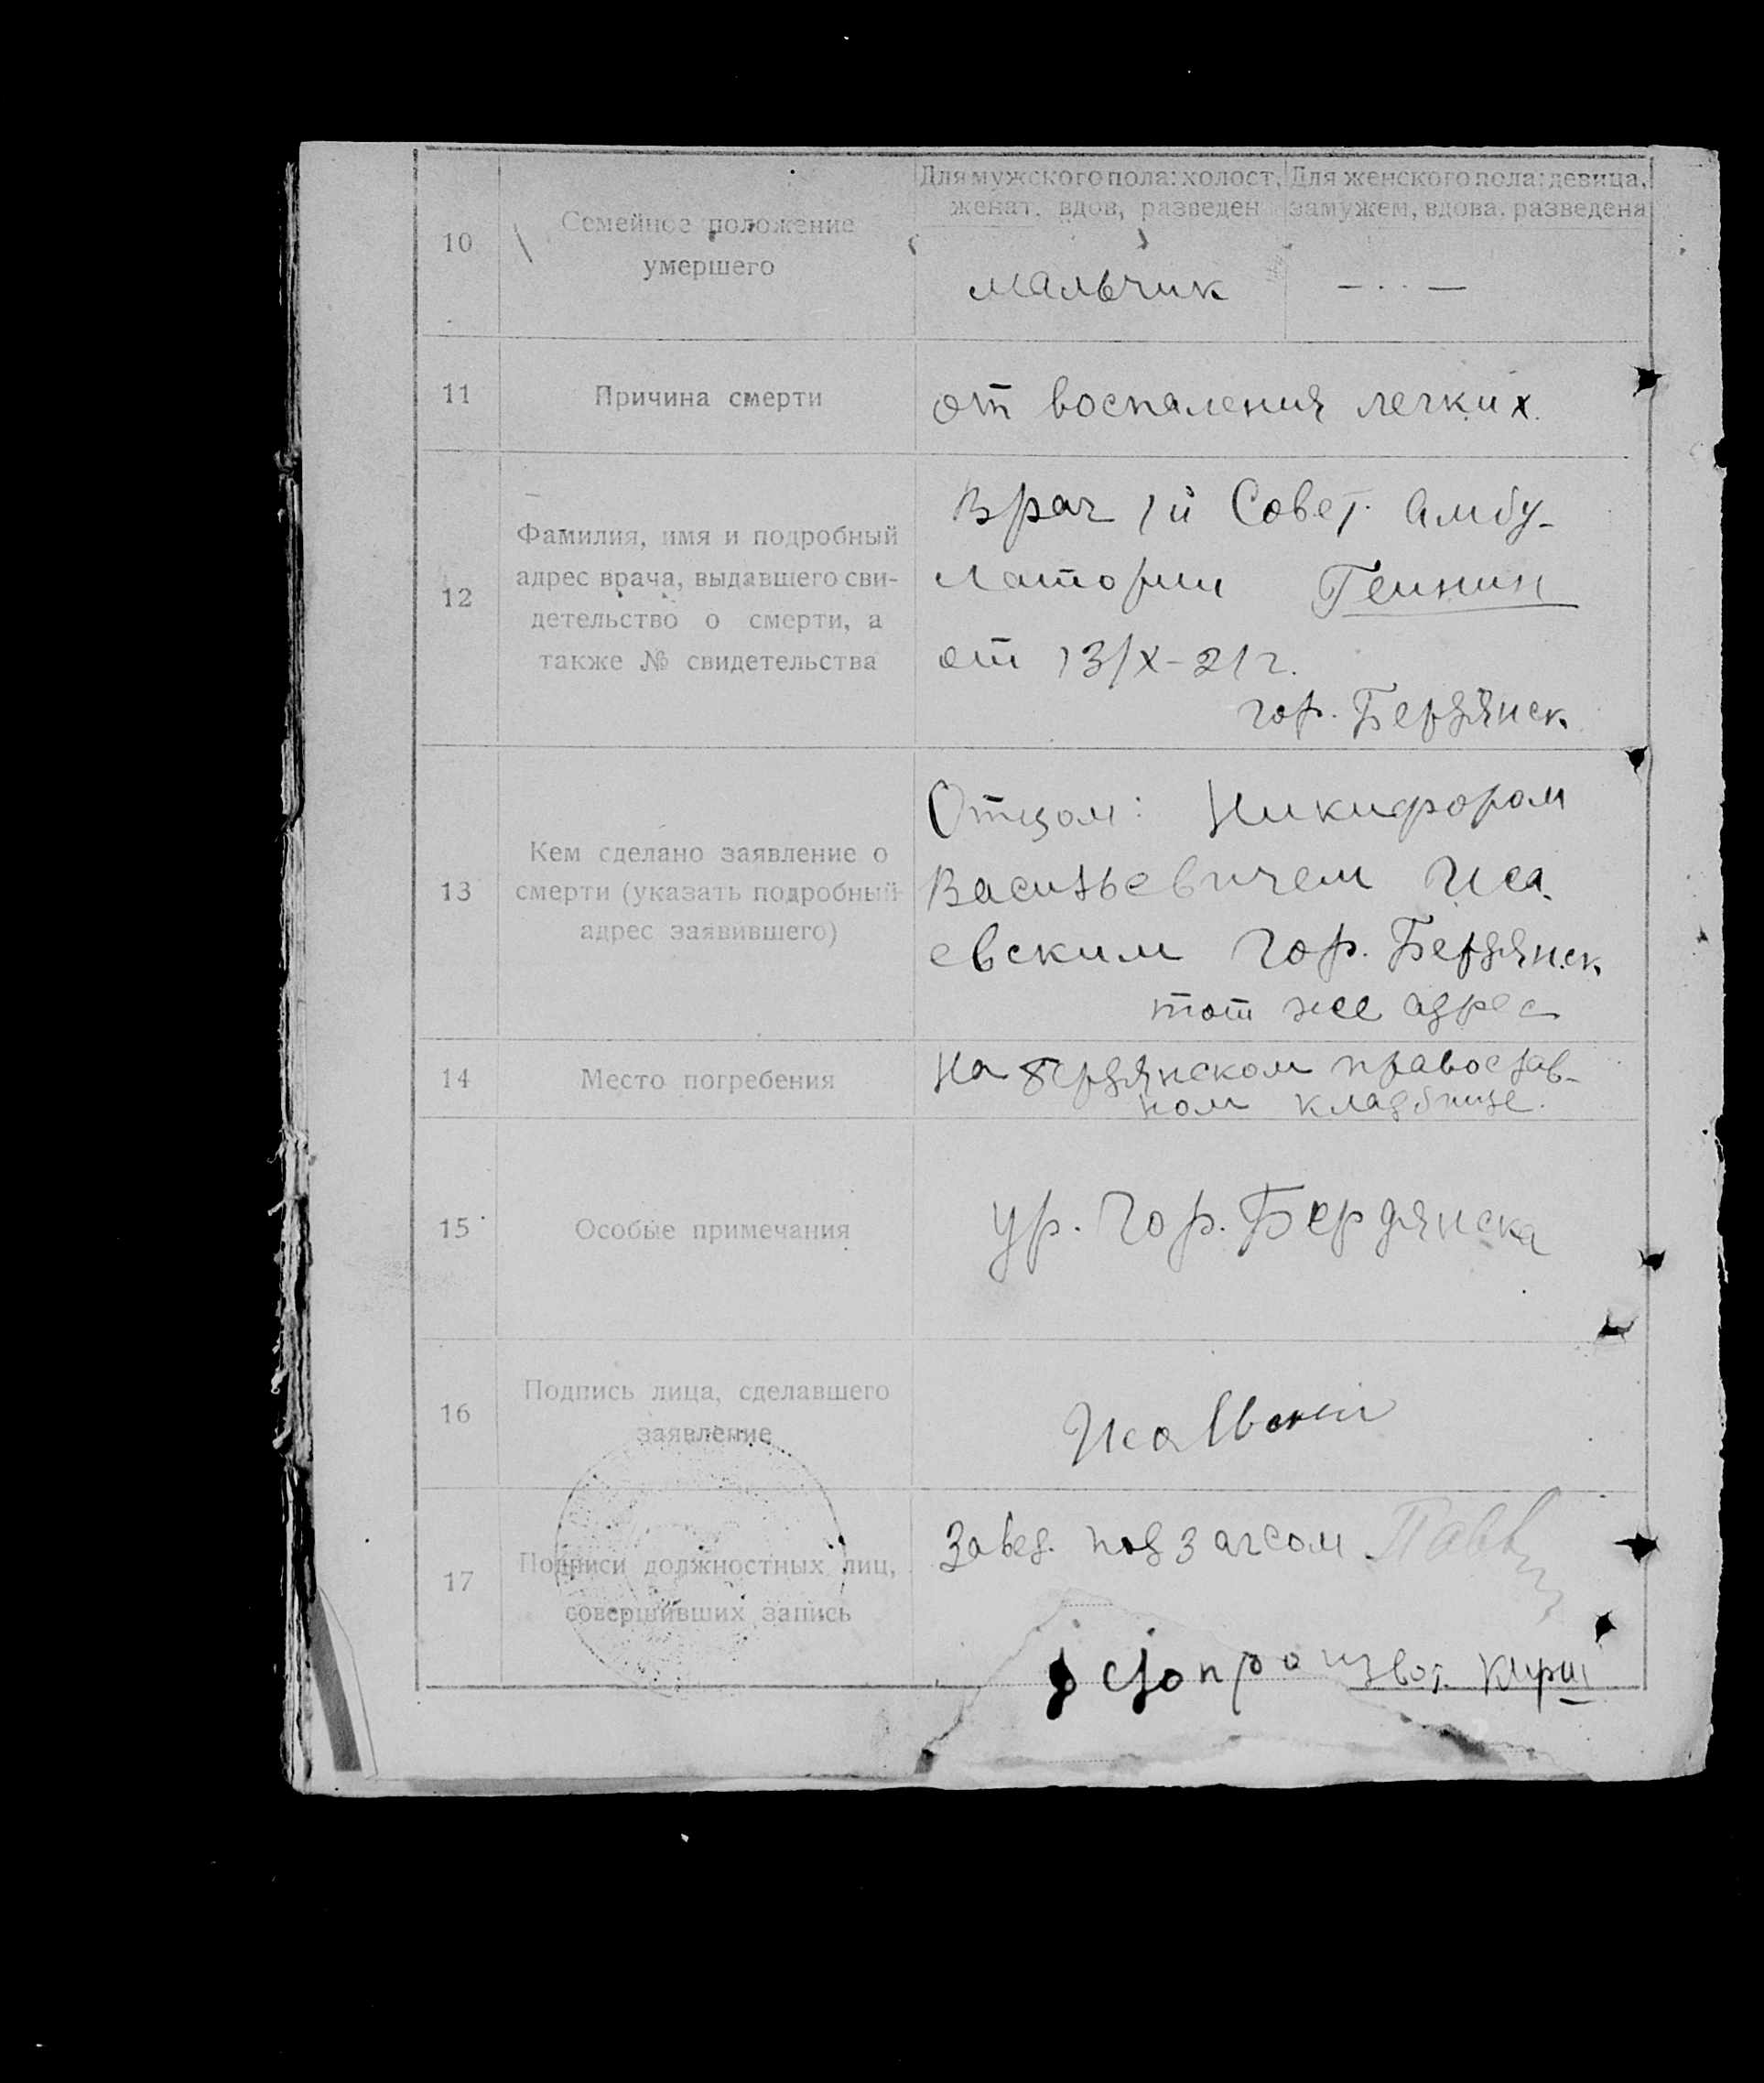 10
Семейное положение
умершего
Для мужского пола: холост,
женат, вдов, разведен
Для женского пола: девица,
замужем, вдова, разведена
мальчик
— · · —
11
Причина смерти
от воспаления легких.
12
Фамилия, имя и подробный
адрес врача, выдавшего сви-
детельство о смерти, а
также № свидетельства
Врач 1й Совет. Амбу-
латории
от 13/X-21г.
гор. Бердянск
13
Кем сделано заявление о
смерти (указать подробный
адрес заявившего)
Отцом: Никифором
Васильевичем Иса-
евским гор. Бердянск
тот же адрес
14
Место погребения
На Бердянском православ-
ном кладбище.
15
Особые примечания
ур. гор. Бердянска
16
Подпись лица, сделавшего
заявление
Исаевский
17
Подписи должностных лиц,
совершивших запись
Завед. подзагсом